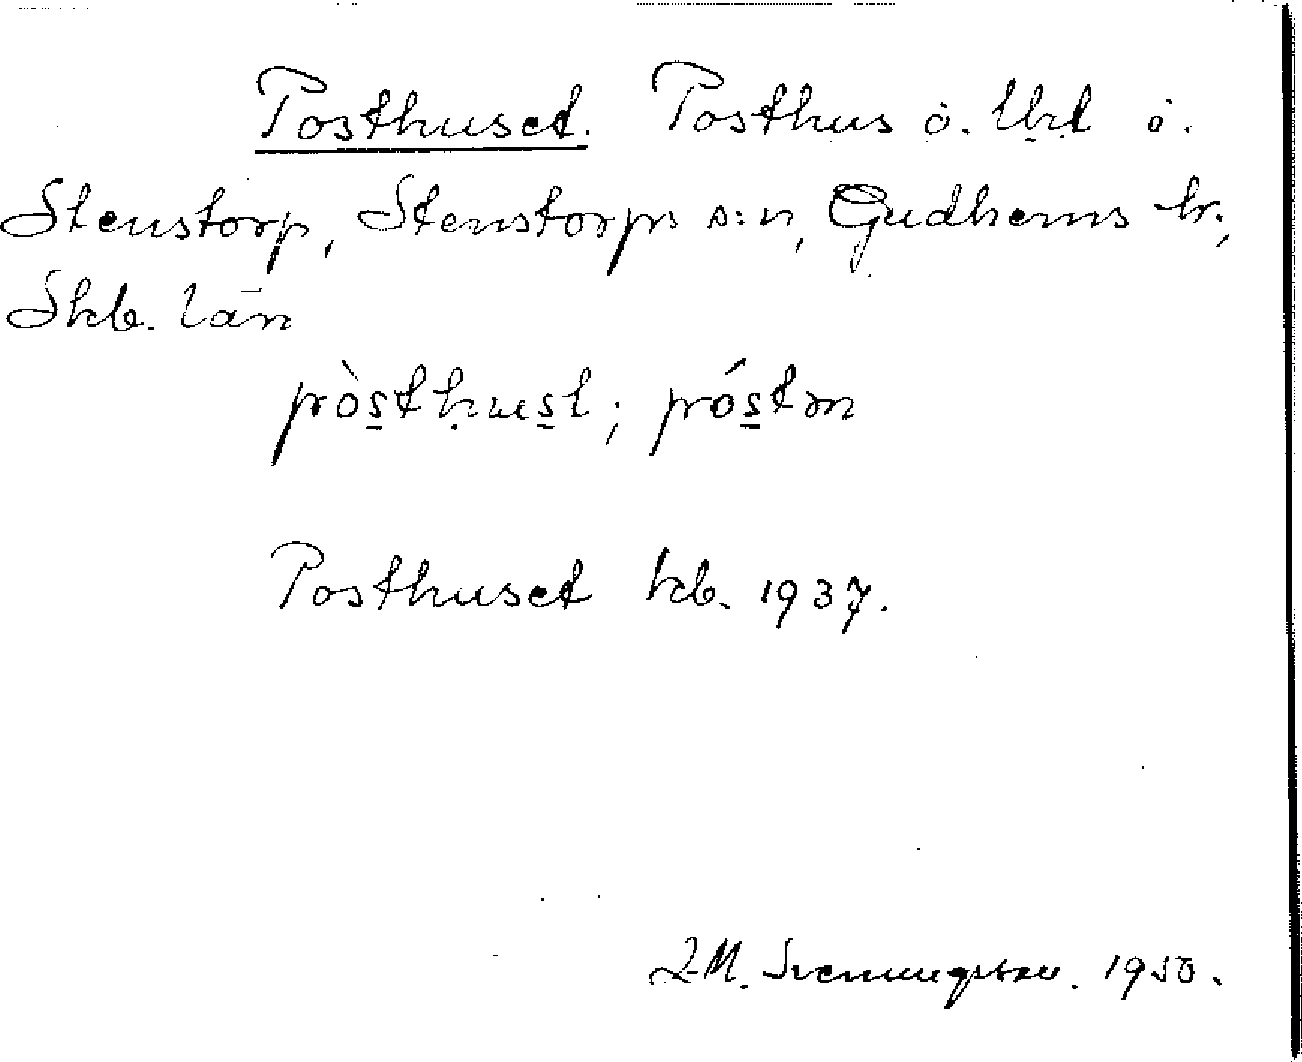 Posthuset. Posthus o. i
Stenstorp, Stenstorps s:n, Gudhems hr,
Skb. län
pòsthust; póstn
Posthuset kb. 1937.
Svenungsson. 1950.